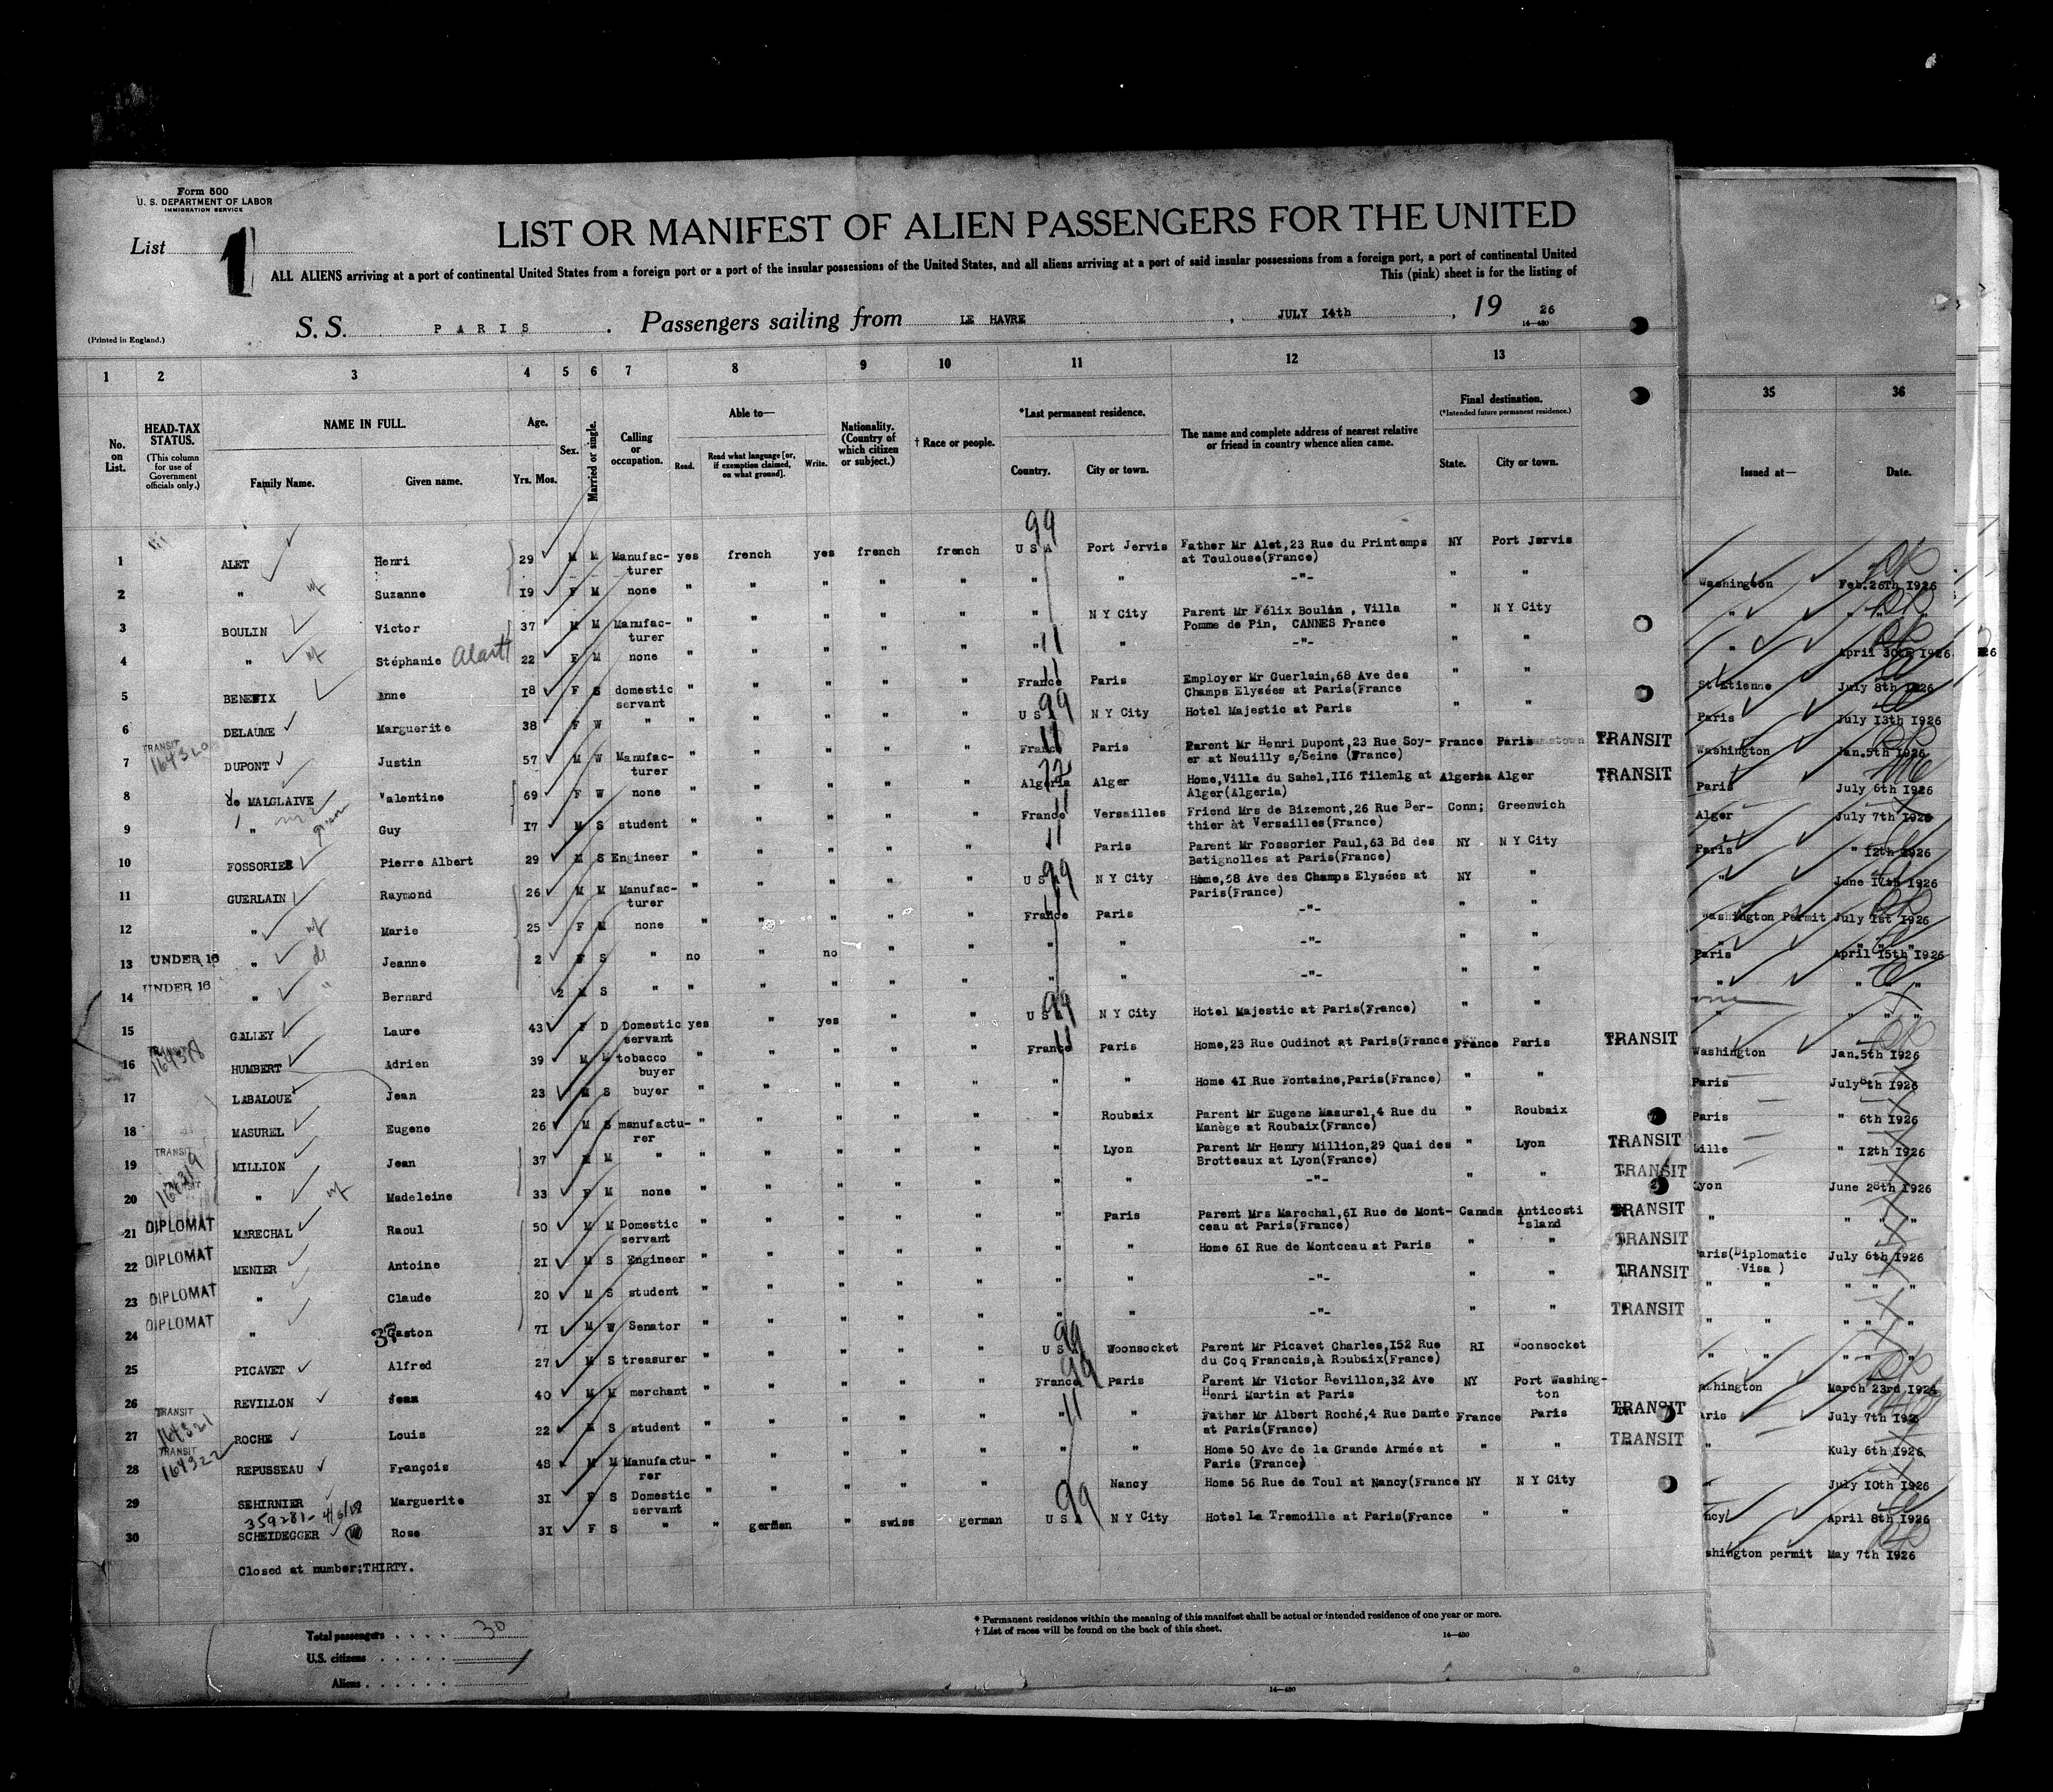 Form 500
U. S. DEPARTMENT OF LABOR
IMMIGRATION SERVICE
List 1
LIST OR MANIFEST OF ALIEN PASSENGERS FOR THE UNITED
ALL ALIENS arriving at a port of continental United States from a foreign port or a port of the insular possessions of the United States, and all aliens arriving at a port of said insular possessions from a foreign port, a port of continental United
This (pink) sheet is for the listing of
S.S. PARIS . Passengers sailing from LE HAVRE , JULY I4th , 19 26
14—430
(Printed in England.)
1 2 3 4 5 6 7 8 9 10 11 12 13 35 36
No. on List.
HEAD-TAX STATUS. (This column for use of Government officials only.)
NAME IN FULL. Family Name. Given name.
Age. Yrs. Mos.
Sex.
Married or single.
Calling or occupation.
Able to— Read. Read what language [or, if exemption claimed, on what ground]. Write.
Nationality. (Country of which citizen or subject.)
† Race or people.
*Last permanent residence. Country. City or town.
The name and complete address of nearest relative or friend in country whence alien came.
Final destination. (*Intended future permanent residence.) State. City or town.
Issued at— Date.
1 ALET Henri 29 M M Manufacturer yes french yes french french 99 U S A Port Jervis Father Mr Alet,23 Rue du Printemps at Toulouse(France) NY Port Jervis
2 " Suzanne I9 F M none " " " " " " " -"- " "
3 BOULIN Victor 37 M M Manufacturer " " " " " " N Y City Parent Mr Félix Boulin , Villa Pomme de Pin, CANNES France " N Y City
4 " Stéphanie 22 F M none " " " " " " " -"- " "
5 BENEFIX Anne I8 F S domestic servant " " " " " 11 France Paris Employer Mr Guerlain,68 Ave des Champs Elysées at Paris(France " "
6 DELAUME Marguerite 38 F W " " " " " " 99 U S A N Y City Hotel Majestic at Paris " "
7 TRANSIT 164320 DUPONT Justin 57 M W Manufacturer " " " " " 11 France Paris Parent Mr Henri Dupont,23 Rue Soyer at Neuilly s/Seine (France) France Paris TRANSIT
8 de MALGLAIVE Valentine 69 F W none " " " " " 72 Algeria Alger Home,Villa du Sahel,II6 Tilemlg at Alger(Algeria) Algeria Alger TRANSIT
9 " Guy I7 M S student " " " " " 11 France Versailles Friend Mrs de Bizemont,26 Rue Berthier àt Versailles(France) Conn; Greenwich
10 FOSSORIER Pierre Albert 29 M S Engineer " " " " " 11 Paris Parent Mr Fossorier Paul,63 Bd des Batignolles at Paris(France) NY N Y City
11 GUERLAIN Raymond 26 M M Manufacturer " " " " " 99 U S A N Y City Home,68 Ave des Champs Elysées at Paris(France) NY "
12 " Marie 25 F M none " " " " " France Paris -"- " "
13 UNDER 16 " Jeanne 2 F S " no " no " " " " -"- " "
14 UNDER 16 " Bernard 2 M S " " " " " " " " -"- " "
15 GALLEY Laure 43 F D Domestic servant yes " yes " " 99 U S A N Y City Hotel Majestic at Paris(France) " "
16 164318 HUMBERT Adrien 39 M M tobacco buyer " " " " " 11 France Paris Home,23 Rue Oudinot at Paris(France France Paris TRANSIT
17 LABALOUE Jean 23 M S buyer " " " " " " Home 4I Rue Fontaine,Paris(France) " "
18 MASUREL Eugene 26 M S manufacturer " " " " " " Roubaix Parent Mr Eugene Masurel,4 Rue du Manège at Roubaix(France) " Roubaix
19 TRANSIT 164319 MILLION Jean 37 M M " " " " " " " Lyon Parent Mr Henry Million,29 Quai des Brotteaux at Lyon(France) " Lyon TRANSIT
20 " Madeleine 33 F M none " " " " " " " -"- " " TRANSIT
21 DIPLOMAT MARECHAL Raoul 50 M M Domestic servant " " " " " " Paris Parent Mrs Marechal,6I Rue de Montceau at Paris(France) Canada Anticosti Island TRANSIT
22 DIPLOMAT MENIER Antoine 2I M S Engineer " " " " " " " Home 6I Rue de Montceau at Paris " " TRANSIT
23 DIPLOMAT " Claude 20 M S student " " " " " " " -"- " " TRANSIT
24 DIPLOMAT " Gaston 7I M W Senator " " " " " " " -"- " " TRANSIT
25 PICAVET Alfred 27 M S treasurer " " " " " 99 U S A Woonsocket Parent Mr Picavet Charles,I52 Rue du Coq Francais,à Roubaix(France) RI Woonsocket
26 REVILLON Jean 40 M M merchant " " " " " 99 France Paris Parent Mr Victor Revillon,32 Ave Henri Martin at Paris NY Port Washington
27 TRANSIT 164321 ROCHE Louis 22 M S student " " " " " 11 " " Father Mr Albert Roché,4 Rue Dante at Paris(France) France Paris TRANSIT
28 TRANSIT 164322 REPUSSEAU François 48 M M Manufacturer " " " " " " " Home 50 Ave de la Grande Armée at Paris (France) " " TRANSIT
29 SEHIRNIER Marguerite 3I F S Domestic servant " " " " " " Nancy Home 56 Rue de Toul at Nancy(France NY N Y City
359281- 4/6/28
30 SCHEIDEGGER Rose 3I F S " " german " swiss german 99 U S A N Y City Hotel La Tremoille at Paris(France " "
Closed at number;THIRTY.
Washington Feb.26Th I926
" " " "
" April 30th I926
St Etienne July 8th I926
Paris July I3th I926
Washington Jan.5th I926
Paris July 6th I926
Alger July 7th I926
Paris " I2th I926
" June I7th I926
Washington Permit July Ist I926
" " " "
Paris April I5th I926
" " " "
Washington Jan.5th I926
Paris July8th I926
Paris " 6th I926
Lille " I2th I926
Lyon June 28th I926
" " " "
Paris(Diplomatic Visa ) July 6th I926
" " " " "
" " " " "
" " " " "
Washington March 23rd I926
Paris July 7th I926
" Kuly 6th I926
" July I0th I926
Nancy April 8th I926
Washington permit May 7th I926
* Permanent residence within the meaning of this manifest shall be actual or intended residence of one year or more.
† List of races will be found on the back of this sheet.
14—430
Total passengers . . . . 30
U.S. citizens . . . . . .
Aliens . . . . . .
14—430